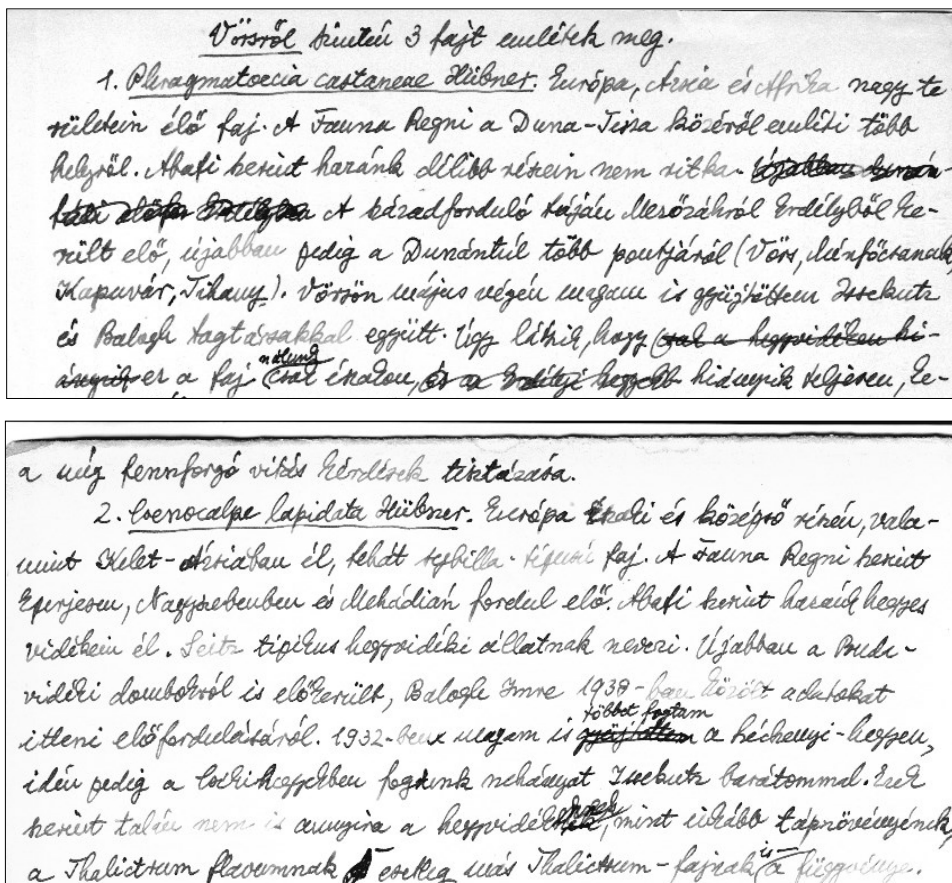 Vörsről szintén 3 fajt említek meg.
1. Phragmatoecia castaneae Hübner. Európa, Ázsia és Afrika nagy te
rületein élő faj. A Fauna Regni a Duna-Tisza közéről említi több
helyről. Abafi szerint hazánk délibb részein nem ritka. Újabban dunán-
túli előfor Erdélyben A századforduló táján Mezőzáhról Erdélyből ke-
rült elő, újabban pedig a Dunántúl több pontjáról (Vörs, Ménfőcsanak
Kapuvár, Tihany). Vörsön május végén magam is gyűjtöttem Issekutz
és Balogh tagtársakkal együtt. Úgy látszik, hogy csak a hegyvidéken hi-
ányzik ez a faj nálunk csak északon, és az Erdélyi hegyekb hiányzik teljesen, ke-
a még fennforgó vitás kérdések tisztázása.
2. Coenocalpe lapidata Hübner. Európa északi és középső részén, vala-
mint Kelet-Ázsiában él, tehát sybilla-típusú faj. A Fauna Regni szerint
Eperjesen, Nagyszebenben és Mehádián fordul elő. Abafi szerint hazánk hegyes
vidékein él. Seitz tipikus hegyvidéki állatnak nevezi. Újabban a Buda-
vidéki dombokról is előkerült, Balogh Imre 1938-ban közölt adatokat
itteni előfordulásáról. 1932-ben magam is gyűjtöttem többet fogtam a Széchenyi-hegyen,
idén pedig a Csikihegyekben fogtunk néhányat Issekutz barátommal. Ezek
szerint talán nem is annyira a hegyvidéknek, mint inkább tápnövényének,
a Thalictrum flavumnak esetleg más Thalictrum-fajnak is a függvénye.